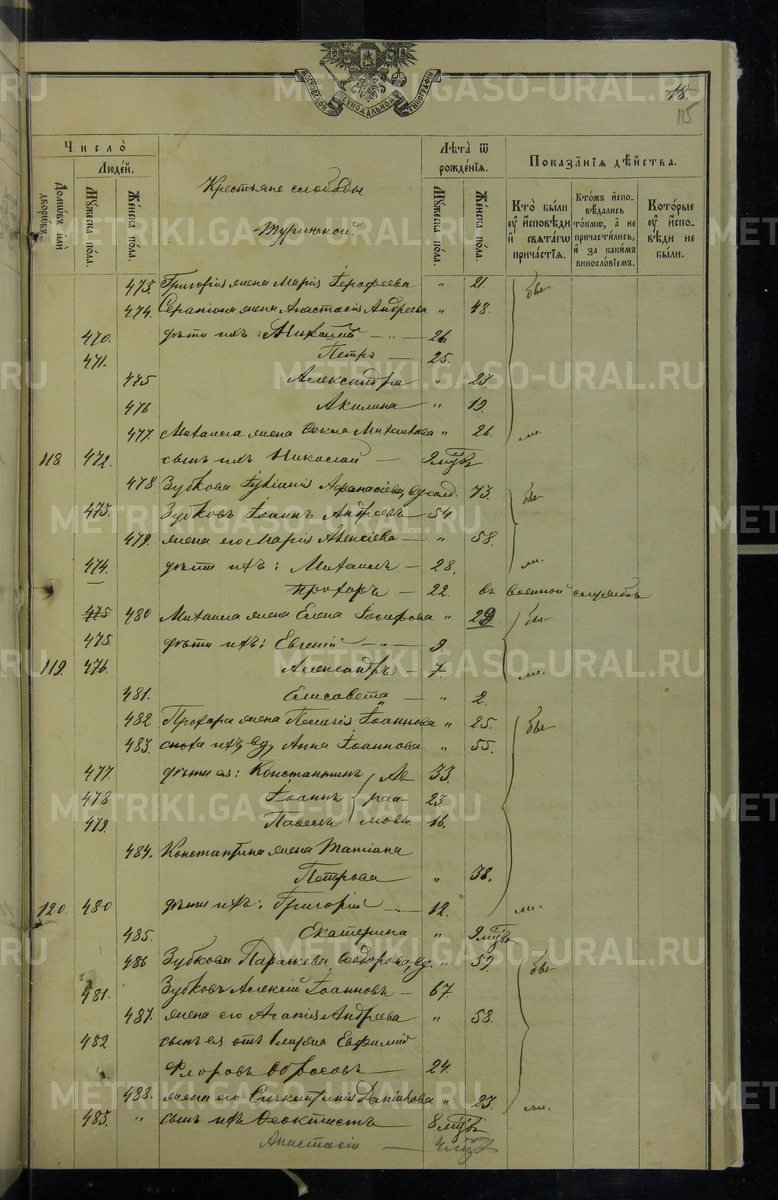 МОСКОВСКОЙ СѴНОДАЛЬНОЙ ТИПОГРАФІИ
18.
115
Число̀
Людей.
Домѡвъ или дворѡвъ.
Мꙋжеска пола.
Женска пола.
Крестьяне слободы
Туринской.
Лѣта ѿ рожденія.
Мꙋжеска пола.
Женска пола.
Показанія дѣйства.
Кто были оу исповѣди и свѧтагѡ причастїѧ.
Ктожъ исповѣдались токмѡ, а не причастились, и за какимъ винословіемъ.
Которые оу исповѣди не были.
473. Григорія жена Марія Іерофеева " 21. бы-
474. Серапіона жена Анастасія Андреева " 48.
470. дѣти ихъ: Михаилъ — " — 26.
471. Петръ — 25.
475 Александра " 23.
476 Акилина " 19.
477. Михаила жена Ѳекла Михайлова " 26. ли.
118. 472. сынъ ихъ Николай —
478 Зубкова Афанасіева, 73. бы-
473. Зубковъ Іоаннъ Андреевъ — 54.
479. жена его Марія Алексіева — " 58.
474. дѣти ихъ: Михаилъ — 28. ли.
Прохоръ — 22. въ военной службѣ
475 480 Михаила жена Елена Іосифова " 29 бы-
475. дѣти ихъ: Евгеній — " — 9.
119. 476. Александръ — 7. ли.
481. Елисавета — " 2.
482 Прохора жена Пелагія Іоаннова " 25. бы-
483. сноха ихъ, вд, Анна Іоаннова " 55.
477. дѣти ея: Константинъ 33.
478 Іоаннъ 23
479. Павелъ 16.
484. Константина жена Татіана
Петрова " 38.
120. 480 дѣти ихъ: Григорій — " — 12. ли.
485. Екатерина "
486 Зубкова Параскева Ѳеодорова, вд. " 59. бы-
481. Зубковъ Алексій Іоанновъ — 67.
487. жена его Агапія Андреева " 53.
482 сынъ ея отъ 1 мужа Евфимій
Флоровъ — 24.
488. жена его Даніилова " 23. ли.
483. " сынъ ихъ Ѳеоктистъ 8 мѣс
Анастасія — 4 мѣс
METRIKI.GASO-URAL.RU